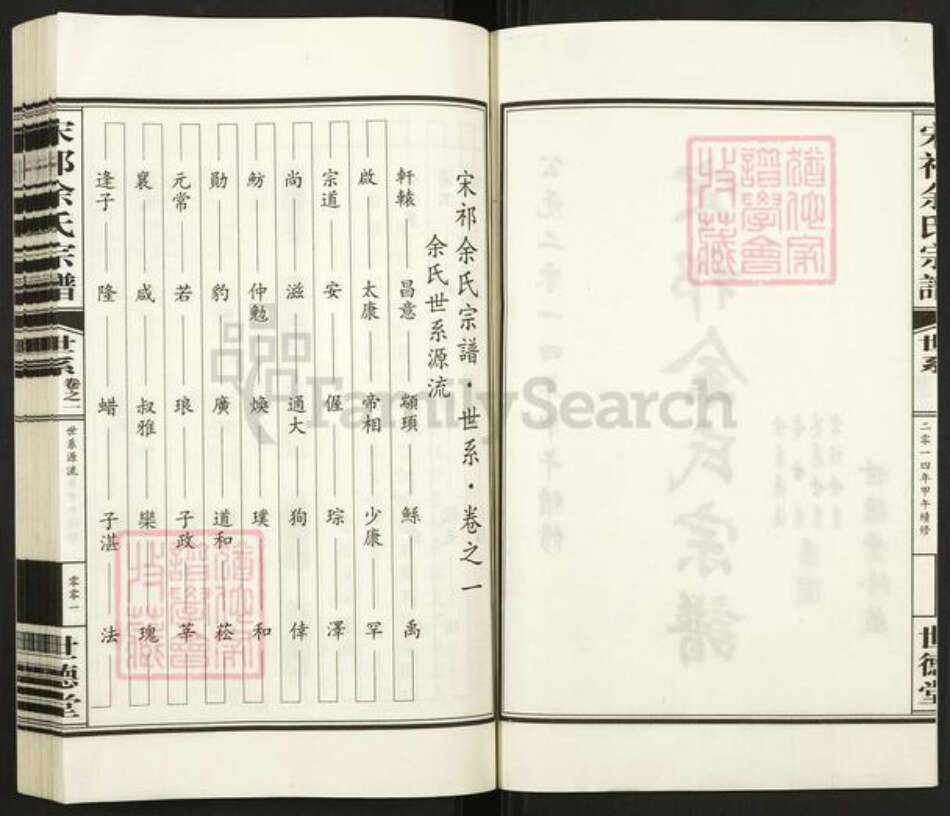 宋祁余氏宗譜
世系
二零一四年甲午續修
世德堂
猶他家譜學會收藏
宋祁余氏宗譜・世系・卷之一
余氏世系源流
軒轅 昌意 顓頊 鯀 禹
啟 太康 帝相 少康 罕
宗道 安 偓 琮 澤
尚 滋 通大 狗 偉
魴 仲勉 煥 璞 和
勛 豹 廣 道和 菘
元常 若 琅 子政 莘
襄 咸 叔雅 欒 瑰
逢子 隆 蜡 子湛 法
猶他家譜學會收藏
宋祁余氏宗譜
世系
卷之一
世系源流
零零一
世德堂
FamilySearch